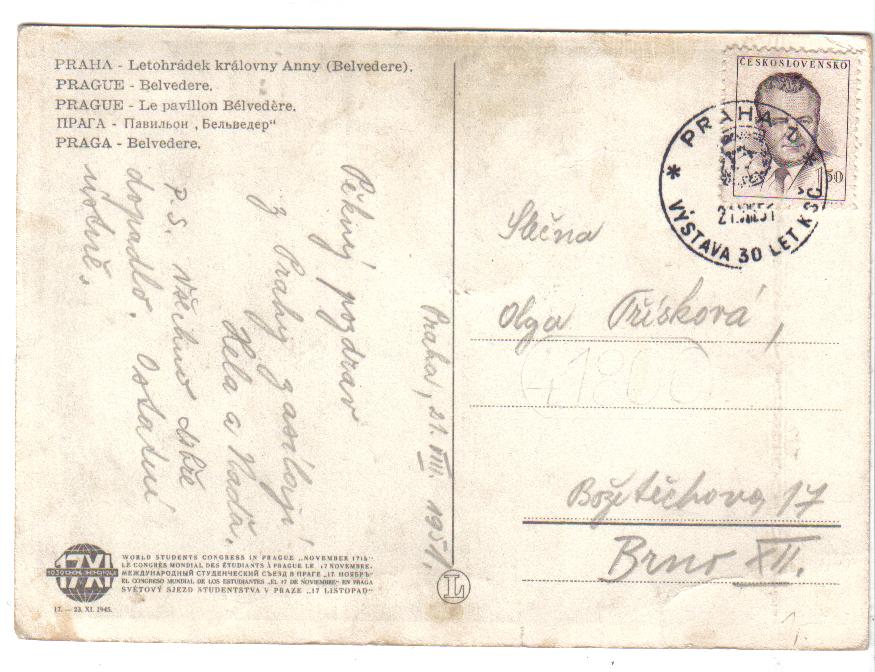 PRAHA - Letohrádek královny Anny (Belvedere).
PRAGUE - Belvedere.
PRAGUE - Le pavillon Bélvedère.
ПРАГА - Павильон „Бельведер“
PRAGA - Belvedere.
Pěkný pozdrav
z Prahy zasílají
Hela a Naďa.
P.S. Všechno dobře
dopadlo. Ostatní
ústně.
Praha, 21. VIII. 1951.
ČESKOSLOVENSKO
1.50
* PRAHA 7 *
21.VIII.51
VÝSTAVA 30 LET KSČ
Slečna
Olga Třísková,
41800
Božetěchova 17
Brno XII.
17 XI
WORLD STUDENTS CONGRESS IN PRAGUE „NOVEMBER 17TH“
LE CONGRÈS MONDIAL DES ÉTUDIANTS À PRAGUE LE „17 NOVEMBRE.
МЕЖДУНАРОДНЫЙ СТУДЕНЧЕСКИЙ СЪЕЗД В ПРАГЕ "17 НОЯБРЬ"
EL CONGRESO MUNDIAL DE LOS ESTUDIANTES „EL 17 DE NOVIEMBRE“ EN PRAGA
SVĚTOVÝ SJEZD STUDENTSTVA V PRAZE „17 LISTOPAD“
17. — 23. XI. 1945.
L